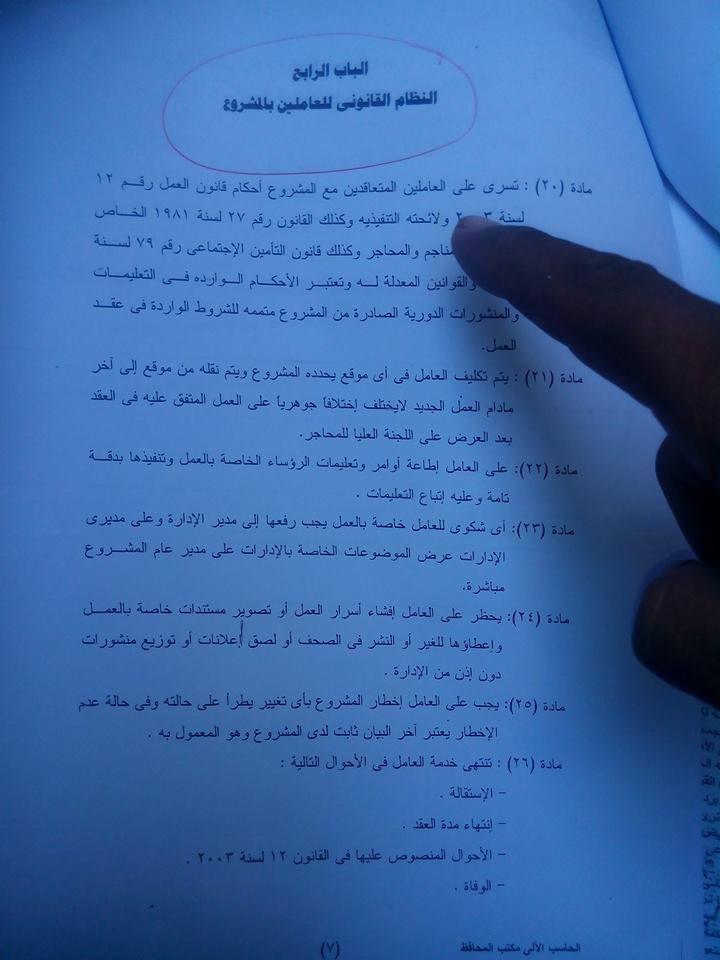 الباب الرابع
النظام القانونى للعاملين بالمشروع
مادة (٢٠) : تسرى على العاملين المتعاقدين مع المشروع أحكام قانون العمل رقم ١٢
لسنة ٢٠٠٣ ولائحته التنفيذيه وكذلك القانون رقم ٢٧ لسنة ١٩٨١ الخاص
والمحاجر وكذلك قانون التأمين الإجتماعى رقم ٧٩ لسنة
والقوانين المعدلة له وتعتبر الأحكام الوارده فى التعليمات
والمنشورات الدورية الصادرة من المشروع متممه للشروط الواردة فى عقد
العمل.
مادة (٢١) : يتم تكليف العامل فى أى موقع يحدده المشروع ويتم نقله من موقع إلى آخر
مادام العمل الجديد لايختلف إختلافاً جوهرياً على العمل المتفق عليه فى العقد
بعد العرض على اللجنة العليا للمحاجر.
مادة (٢٢): على العامل إطاعة أوامر وتعليمات الرؤساء الخاصة بالعمل وتنفيذها بدقة
تامة وعليه إتباع التعليمات .
مادة (٢٣): أى شكوى للعامل خاصة بالعمل يجب رفعها إلى مدير الإدارة وعلى مديرى
الإدارات عرض الموضوعات الخاصة بالإدارات على مدير عام المشروع
مباشرة.
مادة (٢٤): يحظر على العامل إفشاء أسرار العمل أو تصوير مستندات خاصة بالعمل
وإعطاؤها للغير أو النشر فى الصحف أو لصق إعلانات أو توزيع منشورات
دون إذن من الإدارة .
مادة (٢٥): يجب على العامل إخطار المشروع بأى تغيير يطرأ على حالته وفى حالة عدم
الإخطار يعتبر آخر البيان ثابت لدى المشروع وهو المعمول به .
مادة (٢٦) : تنتهى خدمة العامل فى الأحوال التالية :
- الإستقالة .
- إنتهاء مدة العقد .
- الأحوال المنصوص عليها فى القانون ١٢ لسنة ٢٠٠٣ .
- الوفاة .
الحاسب الألى مكتب المحافظ
(٧)